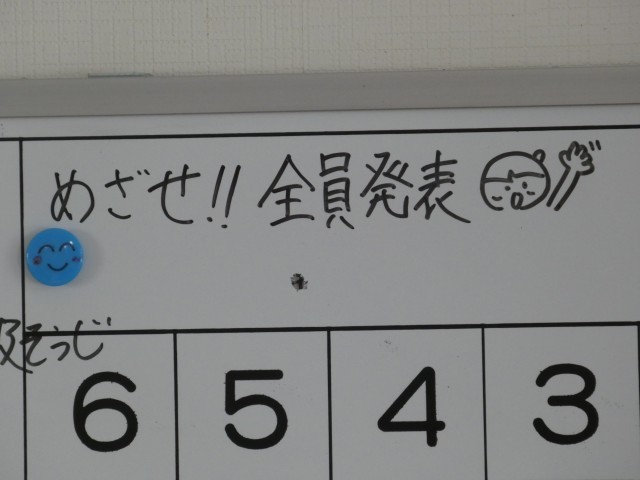 めざせ!! 全員発表
そうじ
6 5 4 3